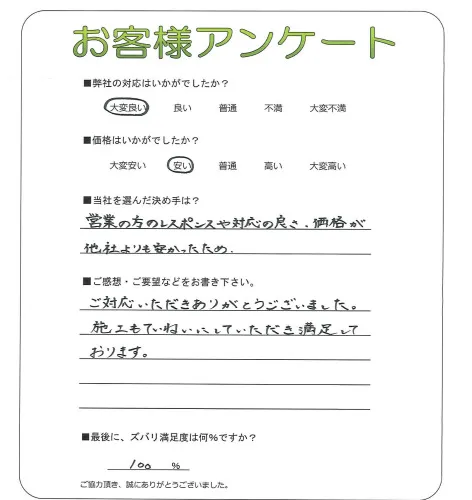 お客様アンケート
■弊社の対応はいかがでしたか？
大変良い 良い 普通 不満 大変不満
■価格はいかがでしたか？
大変安い 安い 普通 高い 大変高い
■当社を選んだ決め手は？
営業の方のレスポンスや対応の良さ、価格が
他社よりも安かったため.
■ご感想・ご要望などをお書き下さい。
ご対応いただきありがとうございました。
施工もていねいにしていただき満足して
おります。
■最後に、ズバリ満足度は何%ですか？
100 %
ご協力頂き、誠にありがとうございました。